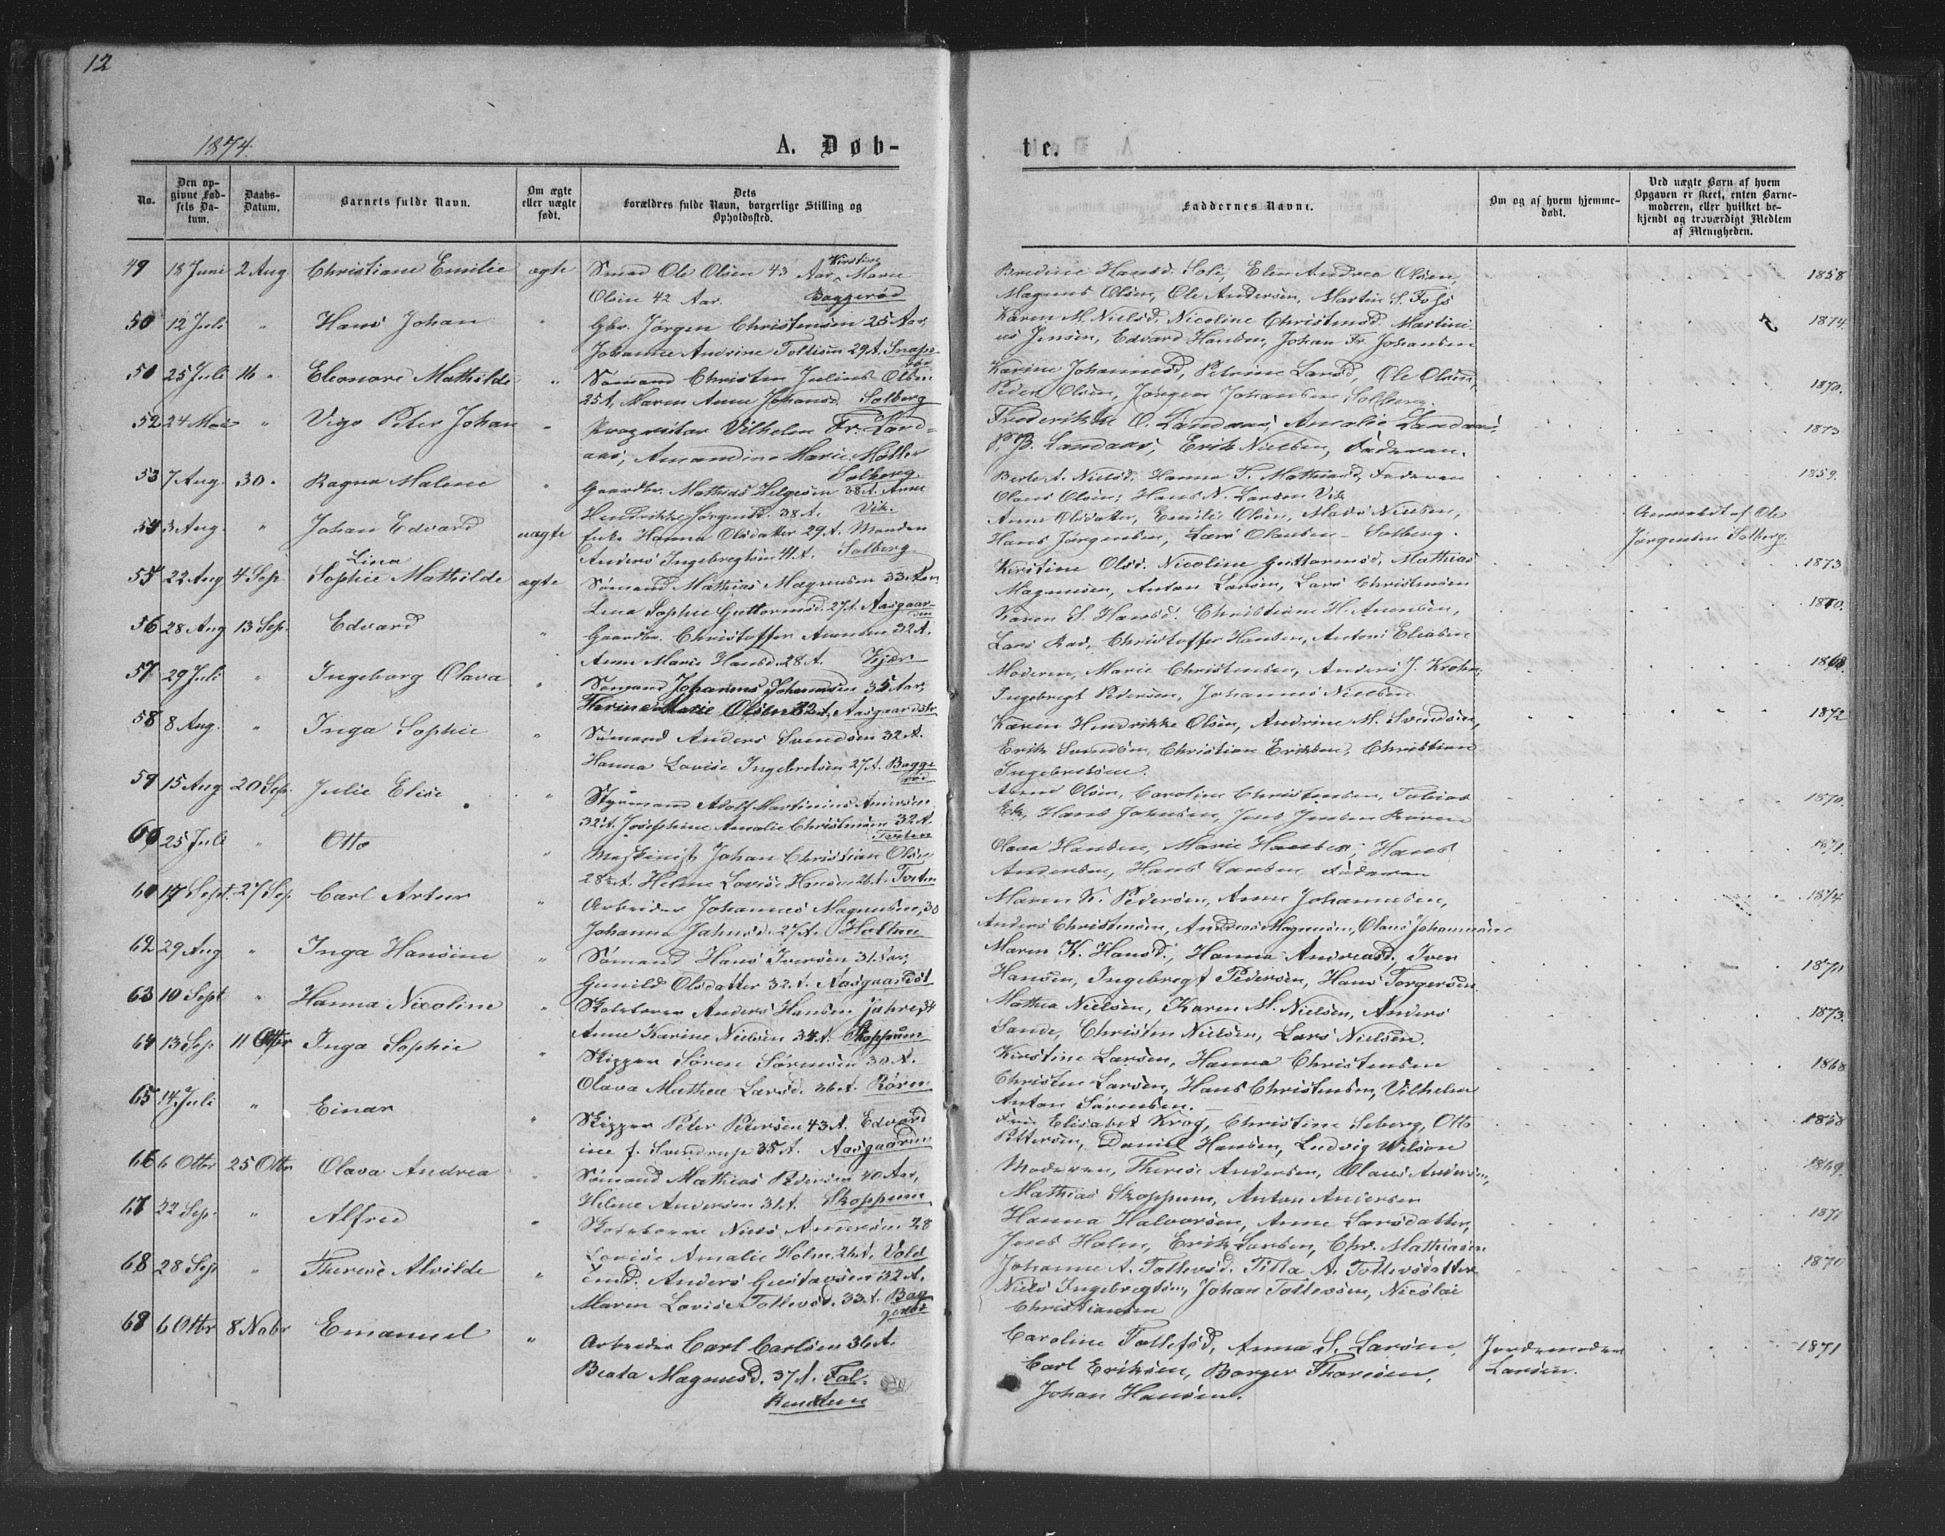 12
1874.
A. Døb-
te.
No.
Den op-
givne Fød-
sels Da-
tum.
Daabs-
Datum.
Barnets fulde Navn.
Om ægte
eller uægte
født.
Dets
Forældres fulde Navn, borgerlige Stilling og
Opholdssted.
Faddernes Navne.
Om og af hvem hjemme-
døbt.
Ved uægte Børn af hvem
Opgaven er skeet, enten Barne-
moderen, eller hvilket be-
kjendt og troværdigt Medlem
af Menigheden.
49 18 Juni 2 Aug Christiane Emilie ægte Smed Ole Olsen 43 Aar, Kirstine Marie
Olsen 42 Aar. Baggerød
Bredine Hansd. Soli, Elen Andrea Olsen, 1858
Magnus Olsen, Ole Andersen, Martin S. Fohs
50 12 Juli " Hans Johan " Gbr. Jørgen Christensen 25 Aar,
Johanne Andrine Tollisen 29 A. Snape-
rør
Karen M. Nielsd. Nicoline Christensd. Martini- 1874.
us Jensen, Edvard Hansen, Johan Fr. Johansen
51 25 Juli 16 " Eleonore Mathilde " Sømand Christen Julius Olsen
25 A, Maren Anne Johansd Solberg
Karine Johannesd, Petrine Larsd, Ole Olsen, 1870.
Peder Olsen, Jørgen Johansen Solberg.
52 24 Mai " Vigo Peter Johan " Proprietær Vilhelm Fr. Land-
aas, Amandine Marie Møller
Solberg
Frederikke O. Landaas, Amalie Landaas, 1873
P. B. Landaas, Erik Nielsen, Faderen.
53 7 Aug. 30 " Ragna Malene " Gaardbr. Mathias Helgesen 38 A. Anne
Hendrikke Jørgensd. 38 A. Vik.
Berte A. Nielsd. Hanna T. Mathiasd, Faderen 1859.
Olaus Olsen, Hans N. Larsen Vik
54 3 Aug. " Johan Edvard uægte Enke Hanna Olsdatter 29 A. Manden
Anders Ingebregtsen 41 A. Solberg
Anne Olsdatter, Emilie Olsen, Mads Nielsen, Anmeldt af Ole
Hans Jørgensen, Lars Olausen - Solberg. Jørgensen Solberg.
55 22 Aug 4 Sep. Lina
Sophie Mathilde ægte Sømand Mathias Magnusen 33 Aar
Lina Sophie Guttormsd. 27 A. Aasgaar-
den
Kirstine Olsd. Nicoline Guttormsd, Mathias 1873
Magnusen, Anton Larsen, Lars Christensen
56 28 Aug 13 Sep. Edvard " Gaardbr. Christoffer Anensen 32 A.
Anne Marie Hansd. 28 A. Kjær
Karen S. Hansd. Christiane H. Anensen, 1870.
Lars Rad, Christoffer Hansen, Antoni Eliasen
57 29 Juli " Ingeborg Olava " Sømand Johannes Johannesen 35 Aar,
Karine Marie Olsen 32 A, Aasgaardstr
Moderen, Marie Christensen, Anders J. Krohn, 1868.
Ingebregt Pedersen, Johannes Nielsen
58 8 Aug. " Inga Sophie " Sømand Anders Svendsen 32 A.
Hanna Lovise Ingebretsen 27 A. Bagge-
rød
Karen Hendrikke Olsen, Andrine M. Svendsen, 1872
Erik Svendsen, Christian Eriksen, Christian
Ingebretsen.
59 15 Aug 20 Sep. Julie Elise " Styrmand Adolf Martinius Andersen
32 A. Josephine Amalie Christensen 32 A.
Tveten
Olsen, Caroline Christensen, Tobias 1870.
Ek, Hans Johnsen, Jens Jensen
60 25 Juli " Otto " Maskinist Johan Christian Olsen
28 A. Helene Lovise Hansen 26 A. Tveten
Olava Hansen, Marie Hansen, Hans 1871.
Andersen, Hans Larsen Faderen
60 17 Sept. 27 Sep. Carl Artur " Arbeider Johannes Magnusen, 30
Johanne Jahnsd. 27 A. Holtan
Maren K. Pedersen, Anne Johannesen, 1874
Anders Christensen, Andreas Magnusen, Olaus Johannesen
62 29 Aug " Inga Hansine " Sømand Hans Iversen 31 Aar,
Gunild Olsdatter 32 A. Aasgaardst
Maren K. Hansd., Hanna Andreasd, Iver 1871
Hansen, Ingebregt Pedersen, Hans Torgersen.
63 10 Sept " Hanna Nicoline " Skolelærer Anders Hansen Jahre, 34
Anne Karine Nielsen 34 A. Skoppum
Mathea Nielsen, Karen M. Nielsen, Anders 1873.
Sande, Christen Nielsen, Lars Nielsen.
64 13 Sep. 11 Otbr Inga Sophie " Skipper Søren Sørensen 30 A.
Olava Mathea Larsd. 36 A. Rørn
Kirstine Larsen, Hanna Christensen 1868
Christen Larsen, Hans Christensen, Vilhelm
Anton Sørensen.
65 14 Juli " Einar " Skipper Peter Petersen 43 A. Edvard
ine f. Svendrup 35 A. Aasgaarden
Frue Elisabet Krog, Christine Seberg, Otto 1858
Pettersen, Daniel Hansen, Ludvig Wilson
66 6 Otbr 25 Otbr Olava Andrea " Sømand Mathias Pedersen 40 Aar,
Helene Andersen 31 A. Skoppum
Moderen, Therese Andersen, Olaus Andersen, 1869.
Mathias Skoppum, Anton Andersen
67 22 Sep. " Alfred " Niels Andersen 28
Lovise Amalie Holm 26 A. Vold
Hanna Halvorsen, Anne Larsdatter, 1871
Jens Holm, Erik Larsen, Chr. Mathiasen
68 28 Sep " Therese Alvilde " Anders Gustavsen 32 A.
Maren Lovise Tollevsd. 33 A. Bag-
gerød
Johanne A. Tollevsd. Titla A. Tollevsdatter 1870
Niels Ingebregtsen, Johan Tollevsen, Nicolai
Christiansen
69 6 Otbr 8 Nobr Emanuel " Arbeider Carl Carlsen 36 A.
Beata Magnusd. 37 A. Fal-
kensten
Caroline Tollefsd, Anna S. Larsen, Jordemoder 1871
Carl Eriksen, Borger Thoresen, Larsen.
Johan Hansen.